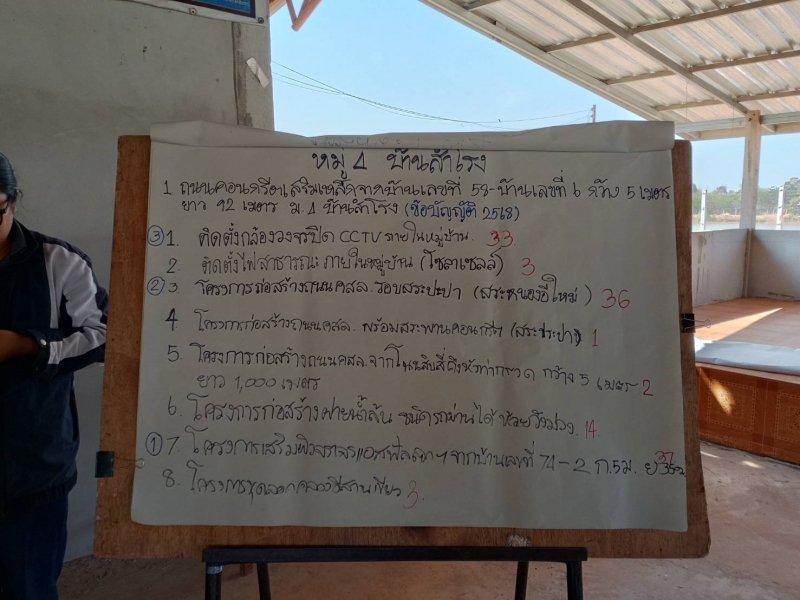 หมู่ 4 บ้านสำโรง
1 ถนนคอนกรีตเสริมเหล็กจากบ้านเลขที่ 58-บ้านเลขที่ 6 กว้าง 5 เมตร
ยาว 92 เมตร ม.4 บ้านสำโรง (ข้อบัญญัติ 2568)
③ 1. ติดตั้งกล้องวงจรปิด CCTV ภายในหมู่บ้าน. 33
2. ติดตั้งไฟสาธารณะภายในหมู่บ้าน (โซลาเซลล์) 3
② 3. โครงการก่อสร้างถนนคสล.รอบสระปะปา (สระหนองอีใหม่) 36
4 โครงการก่อสร้างถนนคสล. พร้อมสะพานคอนกรีต (สระประปา) 1
5. โครงการก่อสร้างถนนคสล.จาก กว้าง 5 เมตร 2
ยาว 1,000 เมตร
6. โครงการก่อสร้างฝายน้ำล้น ชนิดรถผ่านได้ ห้วยวังม่วง. 14
① 7. โครงการเสริมผิวจราจรแอสฟัลติกฯ จากบ้านเลขที่ 74-2 ก.5ม. 37
8. โครงการขุดลอกคลองอีสานเขียว 3